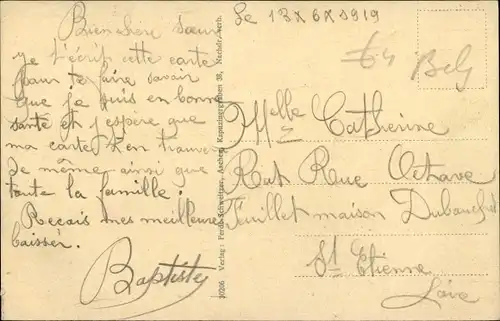 Le 13 X 6 X 1919
Bien chère sœur
je t'écrit cette carte
pour te faire savoir
que je suis en bonne
santé et j'espère que
ma carte t'en trouve
de même ainsi que
toute la famille.
Recois mes meilleurs
baisser.
Baptiste
64
Belg
Melle Catherine
Rat Rue Octave
Feuillet maison
St Etienne
Loire
30266 Verlag: Ferd. Schweitzer, Aachen, Kapuzinergraben 38, Nachdr. verb.